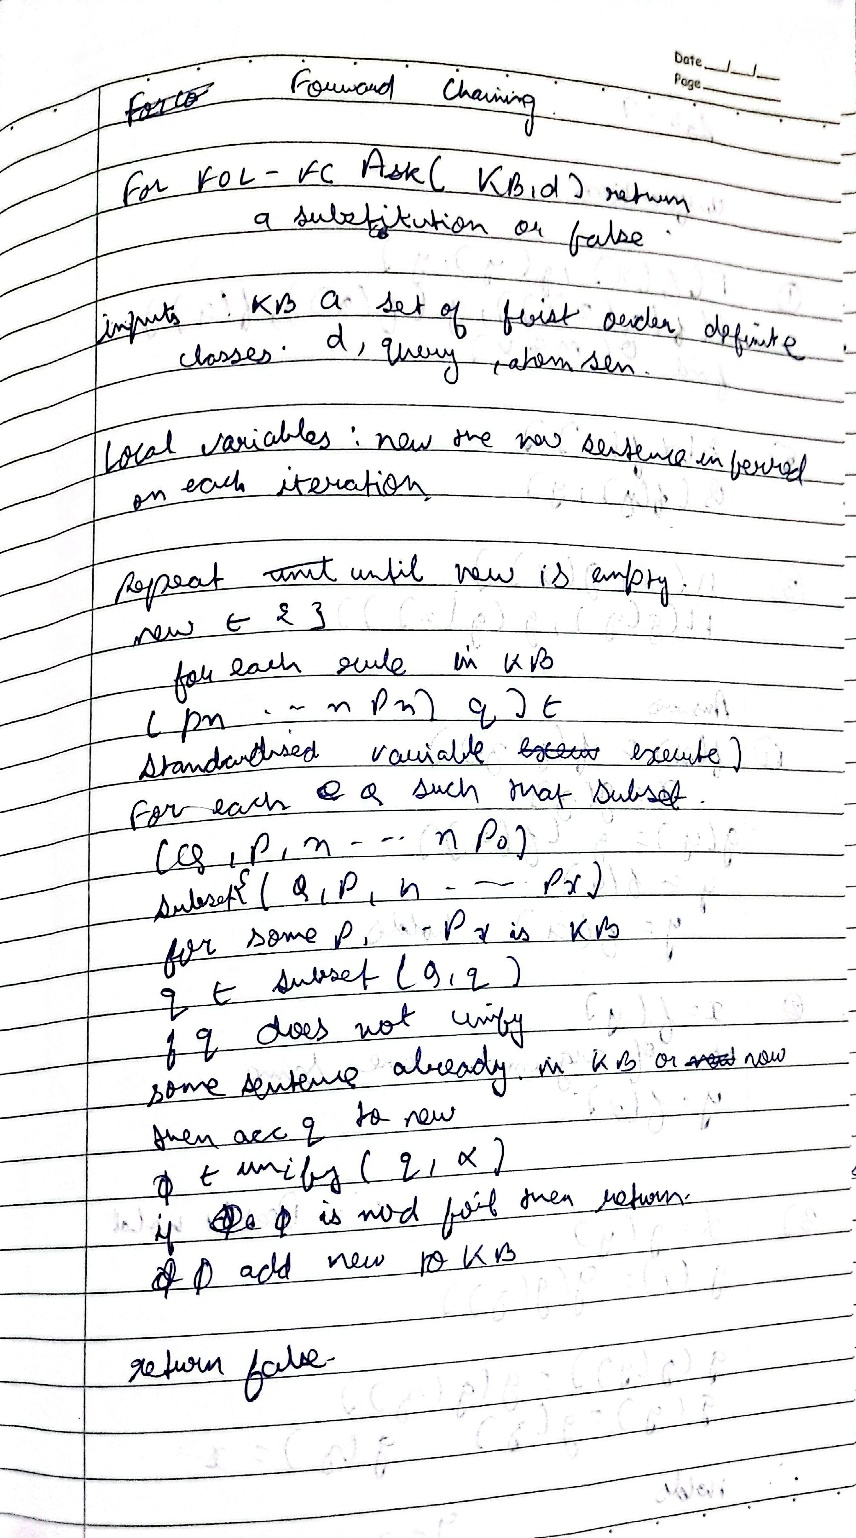 Date
Page
Forward Chaining
For FOL - FC Ask( KB, d) return
a substitution or false
inputs : KB a set of first order, definite
classes. d, query, atom sen.
Local variables : new the new sentence inferred
on each iteration
Repeat until new is empty.
new ← { }
for each rule in KB
( pn . ~ n Pn) q ) ←
Standardised variable execute)
For each Q such that Subset.
(Q, P, n - -- n Po)
Subset ( Q, P, n - — Px)
for some P, .. Px is KB
q ← Subset (Q, q)
if q does not unify
some sentence already in KB or new
then acc q to new
φ ← unify ( q, α )
if φ is nod fail then return.
φ add new to KB
return false.